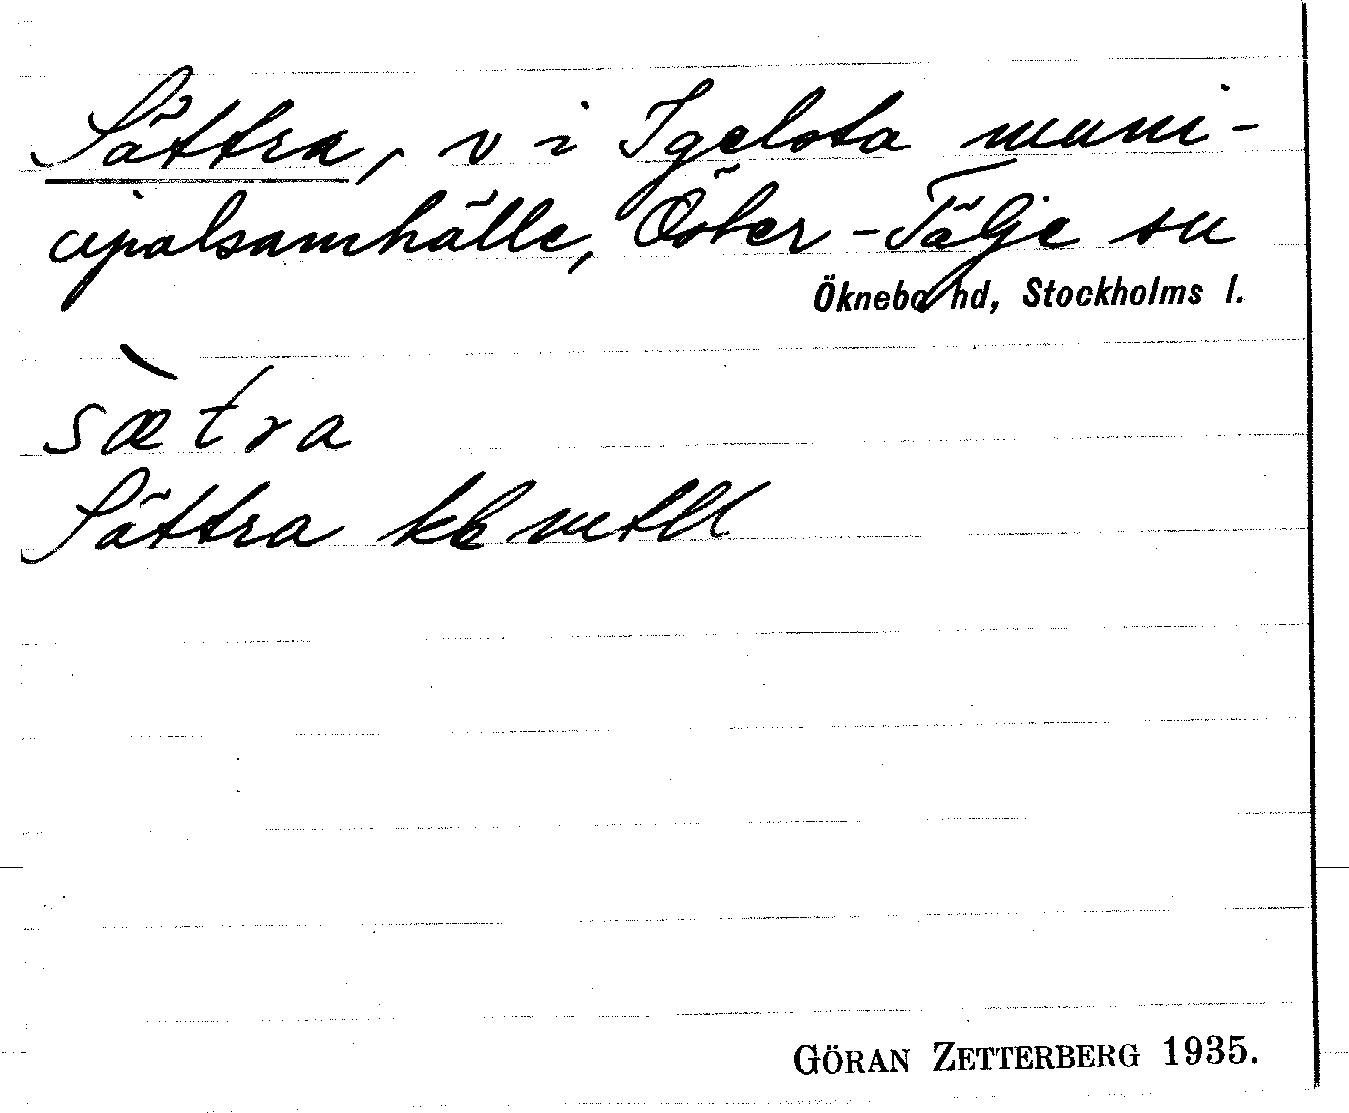 Sättra, v i Igelsta muni-
cipalsamhälle, Öster-Tälje sn
Öknebo hd, Stockholms l.
sæ̀tra
Sättra
GÖRAN ZETTERBERG 1935.